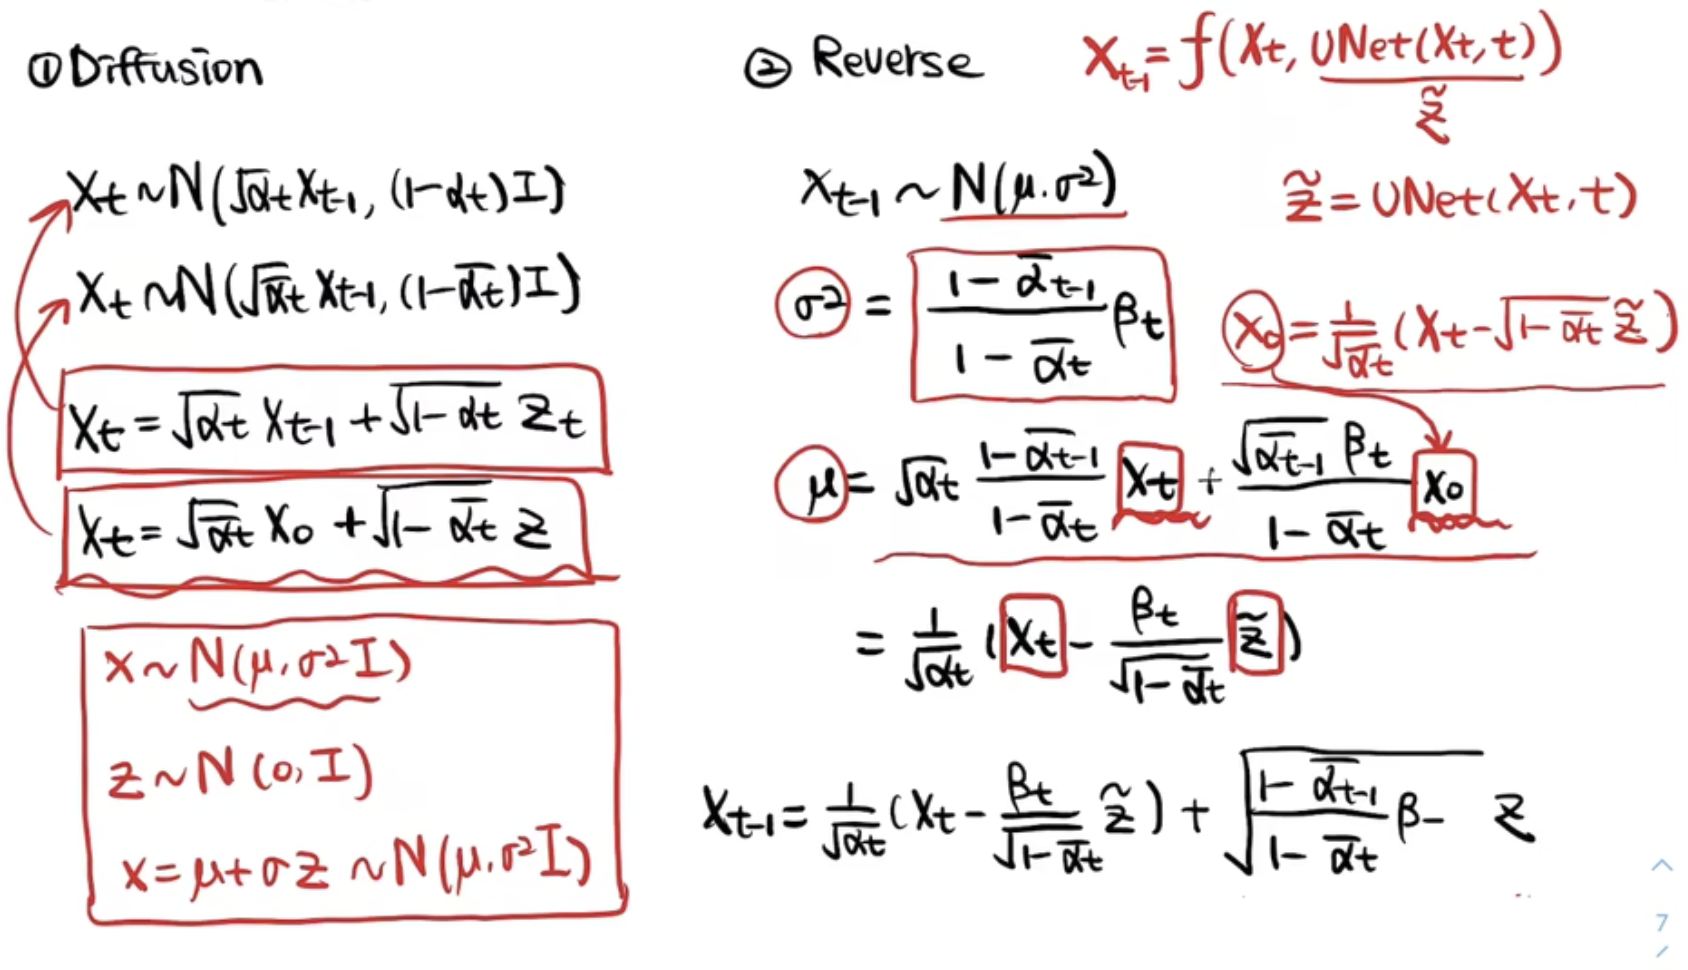 ① Diffusion
X_t ~ N(√α_t X_{t-1}, (1-α_t)I)
X_t ~ N(√ᾱ_t X_{t-1}, (1-ᾱ_t)I)
X_t = √α_t X_{t-1} + √(1-α_t) Z_t
X_t = √ᾱ_t X_0 + √(1-ᾱ_t) Z
X ~ N(μ, σ²I)
Z ~ N(0, I)
X = μ + σZ ~ N(μ, σ²I)
② Reverse
X_{t-1} = f(X_t, UNet(X_t, t))
z̃
X_{t-1} ~ N(μ, σ²)
z̃ = UNet(X_t, t)
σ² = (1-ᾱ_{t-1})/(1-ᾱ_t) β_t
X_0 = 1/√ᾱ_t (X_t - √(1-ᾱ_t) z̃)
μ = √α_t (1-ᾱ_{t-1})/(1-ᾱ_t) X_t + (√ᾱ_{t-1} β_t)/(1-ᾱ_t) X_0
= 1/√α_t (X_t - β_t/√(1-ᾱ_t) z̃)
X_{t-1} = 1/√α_t (X_t - β_t/√(1-ᾱ_t) z̃) + √((1-ᾱ_{t-1})/(1-ᾱ_t) β-) Z
7